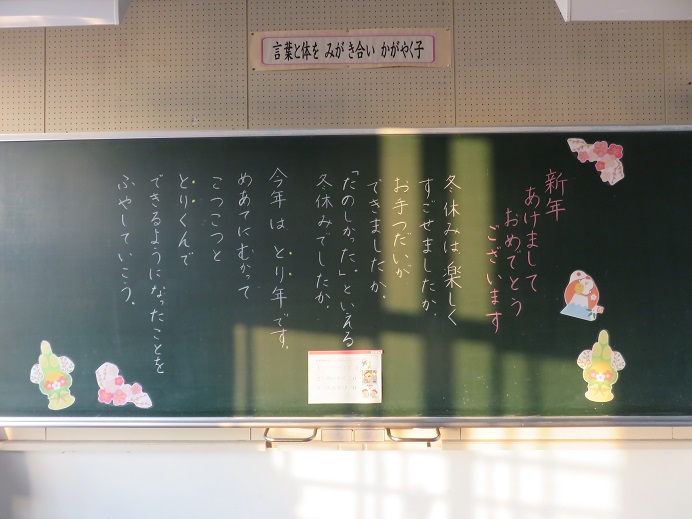 言葉と体を みがき合い かがやく子
新年
あけまして
おめでとう
ございます
冬休みは、楽しく
すごせましたか。
お手つだいが
できましたか。
「たのしかった。」といえる
冬休みでしたか。
今年は とり年です。
めあてにむかって
こつこつと
とりくんで
できるようになったことを
ふやしていこう。